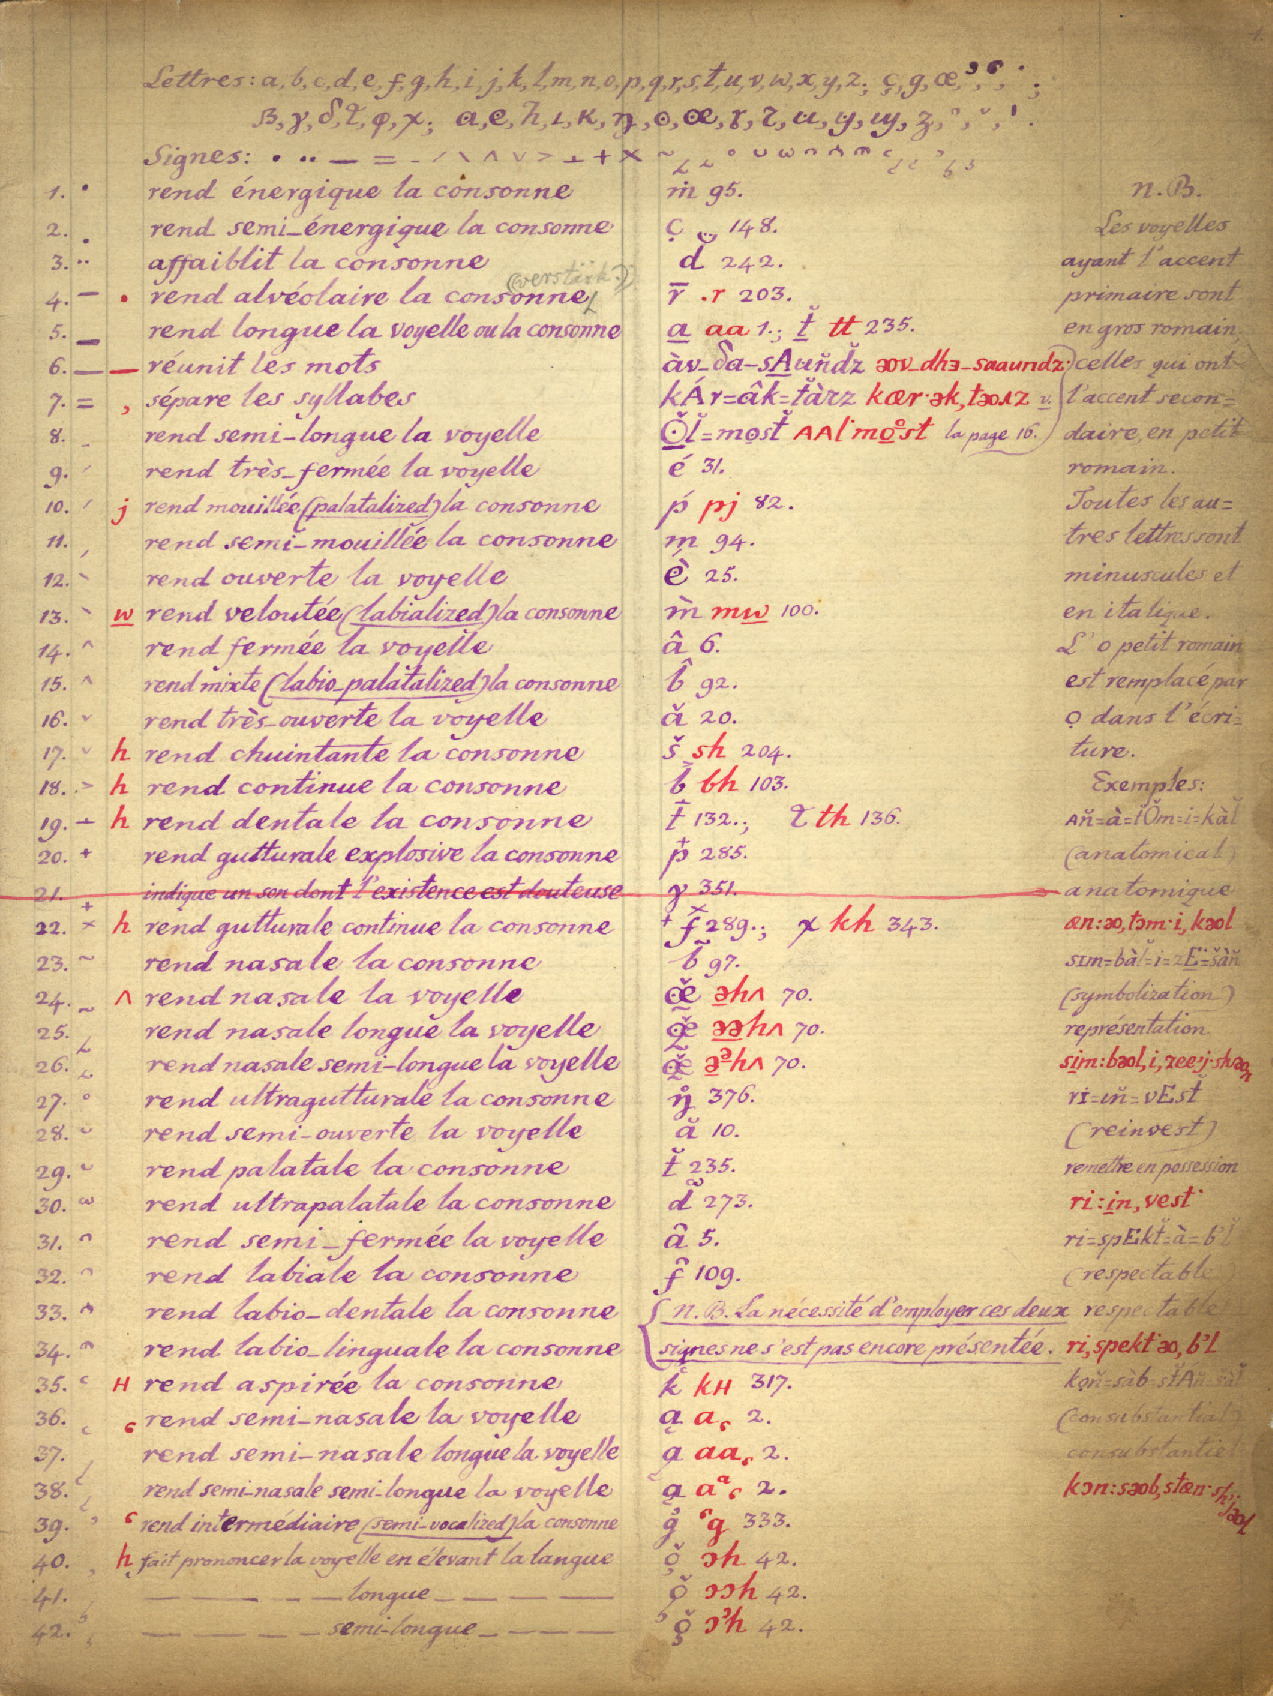 Lettres: a, b, c, d, e, f, g, h, i, j, k, l, m, n, o, p, q, r, s, t, u, v, w, x, y, z; ç, g, œ
Signes: • •• — = - ´ ` ^ ˇ > ⊥ + × ~
1. • rend énergique la consonne ṁ 95.
2. . rend semi-énergique la consonne 148.
3. •• affaiblit la consonne 242.
(verstärk?)
4. — • rend alvéolaire la consonne r̄ .r 203.
5. — rend longue la voyelle ou la consonne a aa 1.; tt 235.
6. — — réunit les mots àv_δa-sAuňdž əov_dhɜ_saaundz
7. = , sépare les syllabes kÁr=âk=tàrz kær·ək,təoʌz v.
8. - rend semi-longue la voyelle ʌʌl·mo°st la page 16.
9. ´ rend très-fermée la voyelle é 31.
10. ´ j rend mouillée (palatalized) la consonne ṕ pj 82.
11. , rend semi-mouillée la consonne m 94.
12. ` rend ouverte la voyelle è 25.
13. ` w rend veloutée (labialized) la consonne m̀ mw 100.
14. ^ rend fermée la voyelle â 6.
15. ^ rend mixte (labio-palatalized) la consonne b̂ 92.
16. ˇ rend très-ouverte la voyelle ǎ 20.
17. ˇ h rend chuintante la consonne š sh 204.
18. > h rend continue la consonne b bh 103.
19. ⊥ h rend dentale la consonne t 132.; τ th 136.
20. + rend gutturale explosive la consonne p 285.
21. + indique un son dont l'existence est douteuse γ 351.
22. × h rend gutturale continue la consonne f 289.; χ kh 343.
23. ~ rend nasale la consonne b̃ 97.
24. ~ ʌ rend nasale la voyelle œ əhʌ 70.
25. rend nasale longue la voyelle œ əəhʌ 70.
26. rend nasale semi-longue la voyelle œ əᵊhʌ 70.
27. ° rend ultragutturale la consonne 376.
28. ˘ rend semi-ouverte la voyelle ă 10.
29. ˘ rend palatale la consonne t̆ 235.
30. ω rend ultrapalatale la consonne d 273.
31. rend semi-fermée la voyelle a 5.
32. rend labiale la consonne f 109.
33. rend labio-dentale la consonne { N.B. La nécessité d'employer ces deux
34. rend labio-linguale la consonne signes ne s'est pas encore présentée.
35. ʜ rend aspirée la consonne k kʜ 317.
36. rend semi-nasale la voyelle a a 2.
37. rend semi-nasale longue la voyelle a aa 2.
38. rend semi-nasale semi-longue la voyelle a aᵃ 2.
39. rend intermédiaire (semi-vocalized) la consonne g g 333.
40. h fait prononcer la voyelle en élevant la langue ɔh 42.
41. — — — — longue — — — — ɔɔh 42.
42. — — — — semi-longue — — — — ɔᵓh 42.
N.B.
Les voyelles
ayant l'accent
primaire sont
en gros romain,
celles qui ont
l'accent secon=
daire, en petit
romain.
Toutes les au=
tres lettres sont
minuscules et
en italique.
L'o petit romain
est remplacé par
ọ dans l'écri=
ture.
Exemples:
(anatomical)
anatomique
æn:əo,tɔm·i,kəol
(symbolization)
représentation.
sim:bəol,i,zee·j·shəon
ri=iň=vEst
(reinvest)
remettre en possession
ri:in,vest·
(respectable)
respectable
ri,spekt·əo,b'l
(consubstantial)
consubstantiel
kɔn:səob,stæn·sh:əol